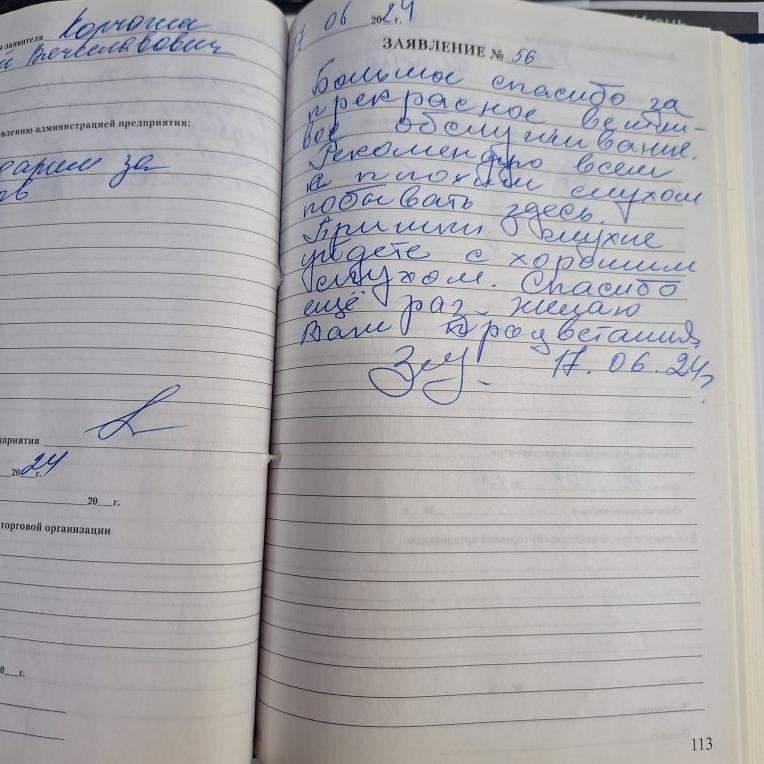 заявителя Корчоша
й Вячеславович
влению администрацией предприятия:
дарим за
ов
дприятия
2024г.
20__г.
торговой организации
0__г.
17 06 2024г.
ЗАЯВЛЕНИЕ № 56
Большое спасибо за
прекрасное вежли-
вое обслуживание.
Рекомендую всем
с плохим слухом
побывать здесь.
Пришли глухие
уйдете с хорошим
слухом. Спасибо
ещё раз. желаю
Вам процветания,
17.06.24г.
113